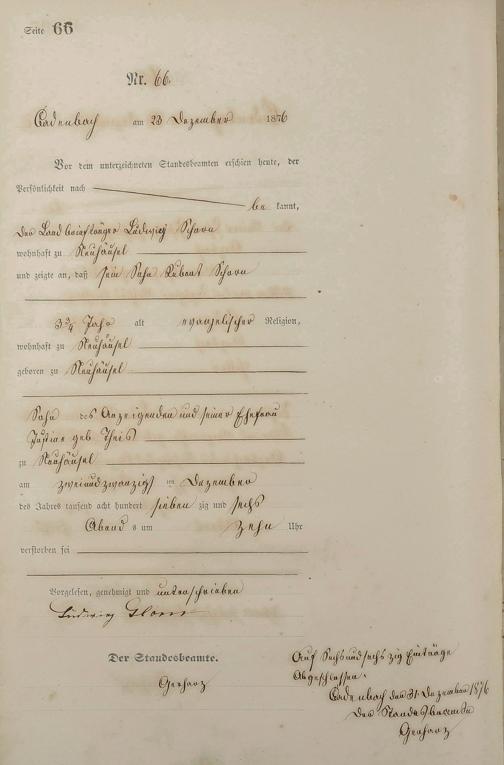 Seite 66
Nr. 66.
Cadenbach am 23 Dezember 1876
Vor dem unterzeichneten Standesbeamten erschien heute, der
Persönlichkeit nach
be kannt,
der Landbriefträger Ludwig Schorn
wohnhaft zu Neuhäusel
und zeigte an, daß sein Sohn Robert Schorn
3 3/4 Jahr alt evangelischer Religion,
wohnhaft zu Neuhäusel
geboren zu Neuhäusel
Sohn des Anzeigenden und seiner Ehefrau
Justine geb Theis
zu Neuhäusel
am zweiundzwanzigst en Dezember
des Jahres tausend acht hundert sieben zig und sechs
Abend s um zehn Uhr
verstorben sei
Vorgelesen, genehmigt und unterschrieben
Ludwig
Der Standesbeamte.
Gerharz
Auf Sechsundsechszig Einträge
Abgeschlossen.
Cadenbach den 31. Dezember 1876
Der Standesbeamte
Gerharz